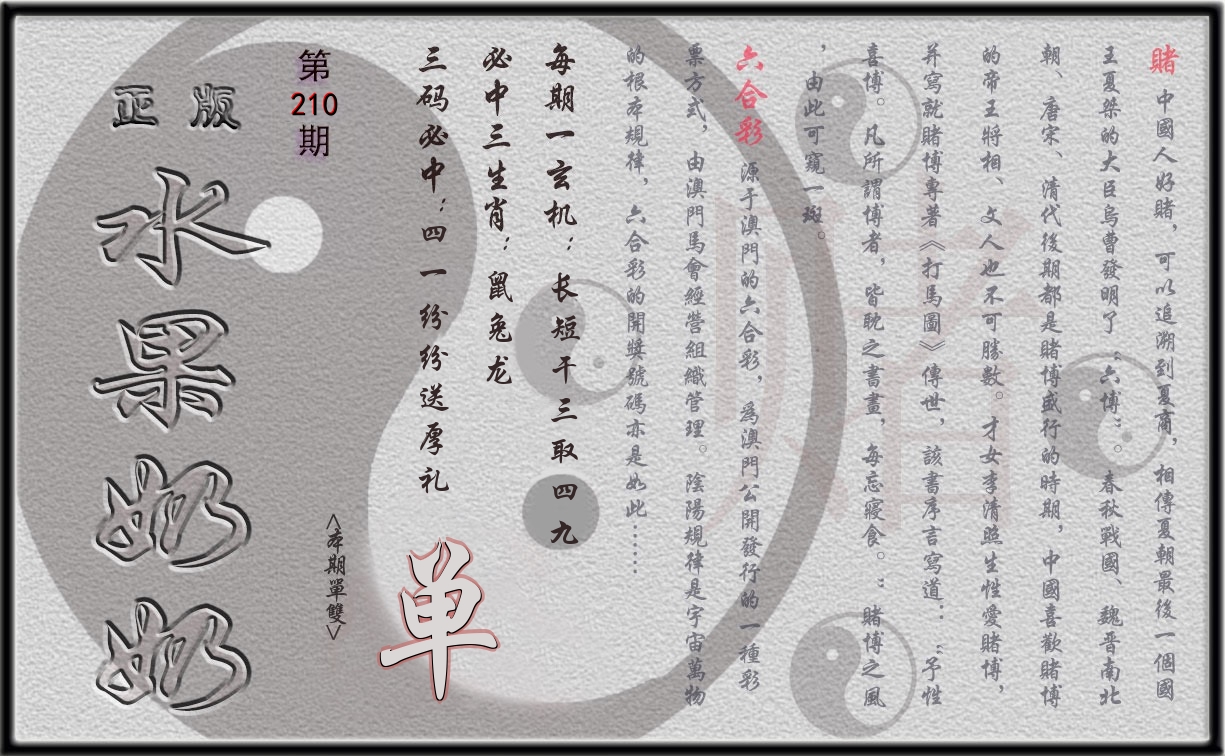 賭 中國人好賭，可以追溯到夏商，相傳夏朝最後一個國
王夏桀的大臣烏曹發明了“六博”。春秋戰國、魏晋南北
朝、唐宋、清代後期都是賭博盛行的時期，中國喜歡賭博
的帝王將相、文人也不可勝數。才女李清照生性愛賭博，
并寫就賭博專著《打馬圖》傳世，該書序言寫道：“予性
喜博。凡所謂博者，皆耽之書畫，每忘寢食。”賭博之風
，由此可窺一斑。
六合彩 源于澳門的六合彩，爲澳門公開發行的一種彩
票方式，由澳門馬會經營組織管理。陰陽規律是宇宙萬物
的根本規律，六合彩的開獎號碼亦是如此……
賭
每期一玄机：长短干三取四九
必中三生肖：鼠兔龙
三码必中：四一纷纷送厚礼
单
<本期單雙>
第
210
期
正版
水果奶奶